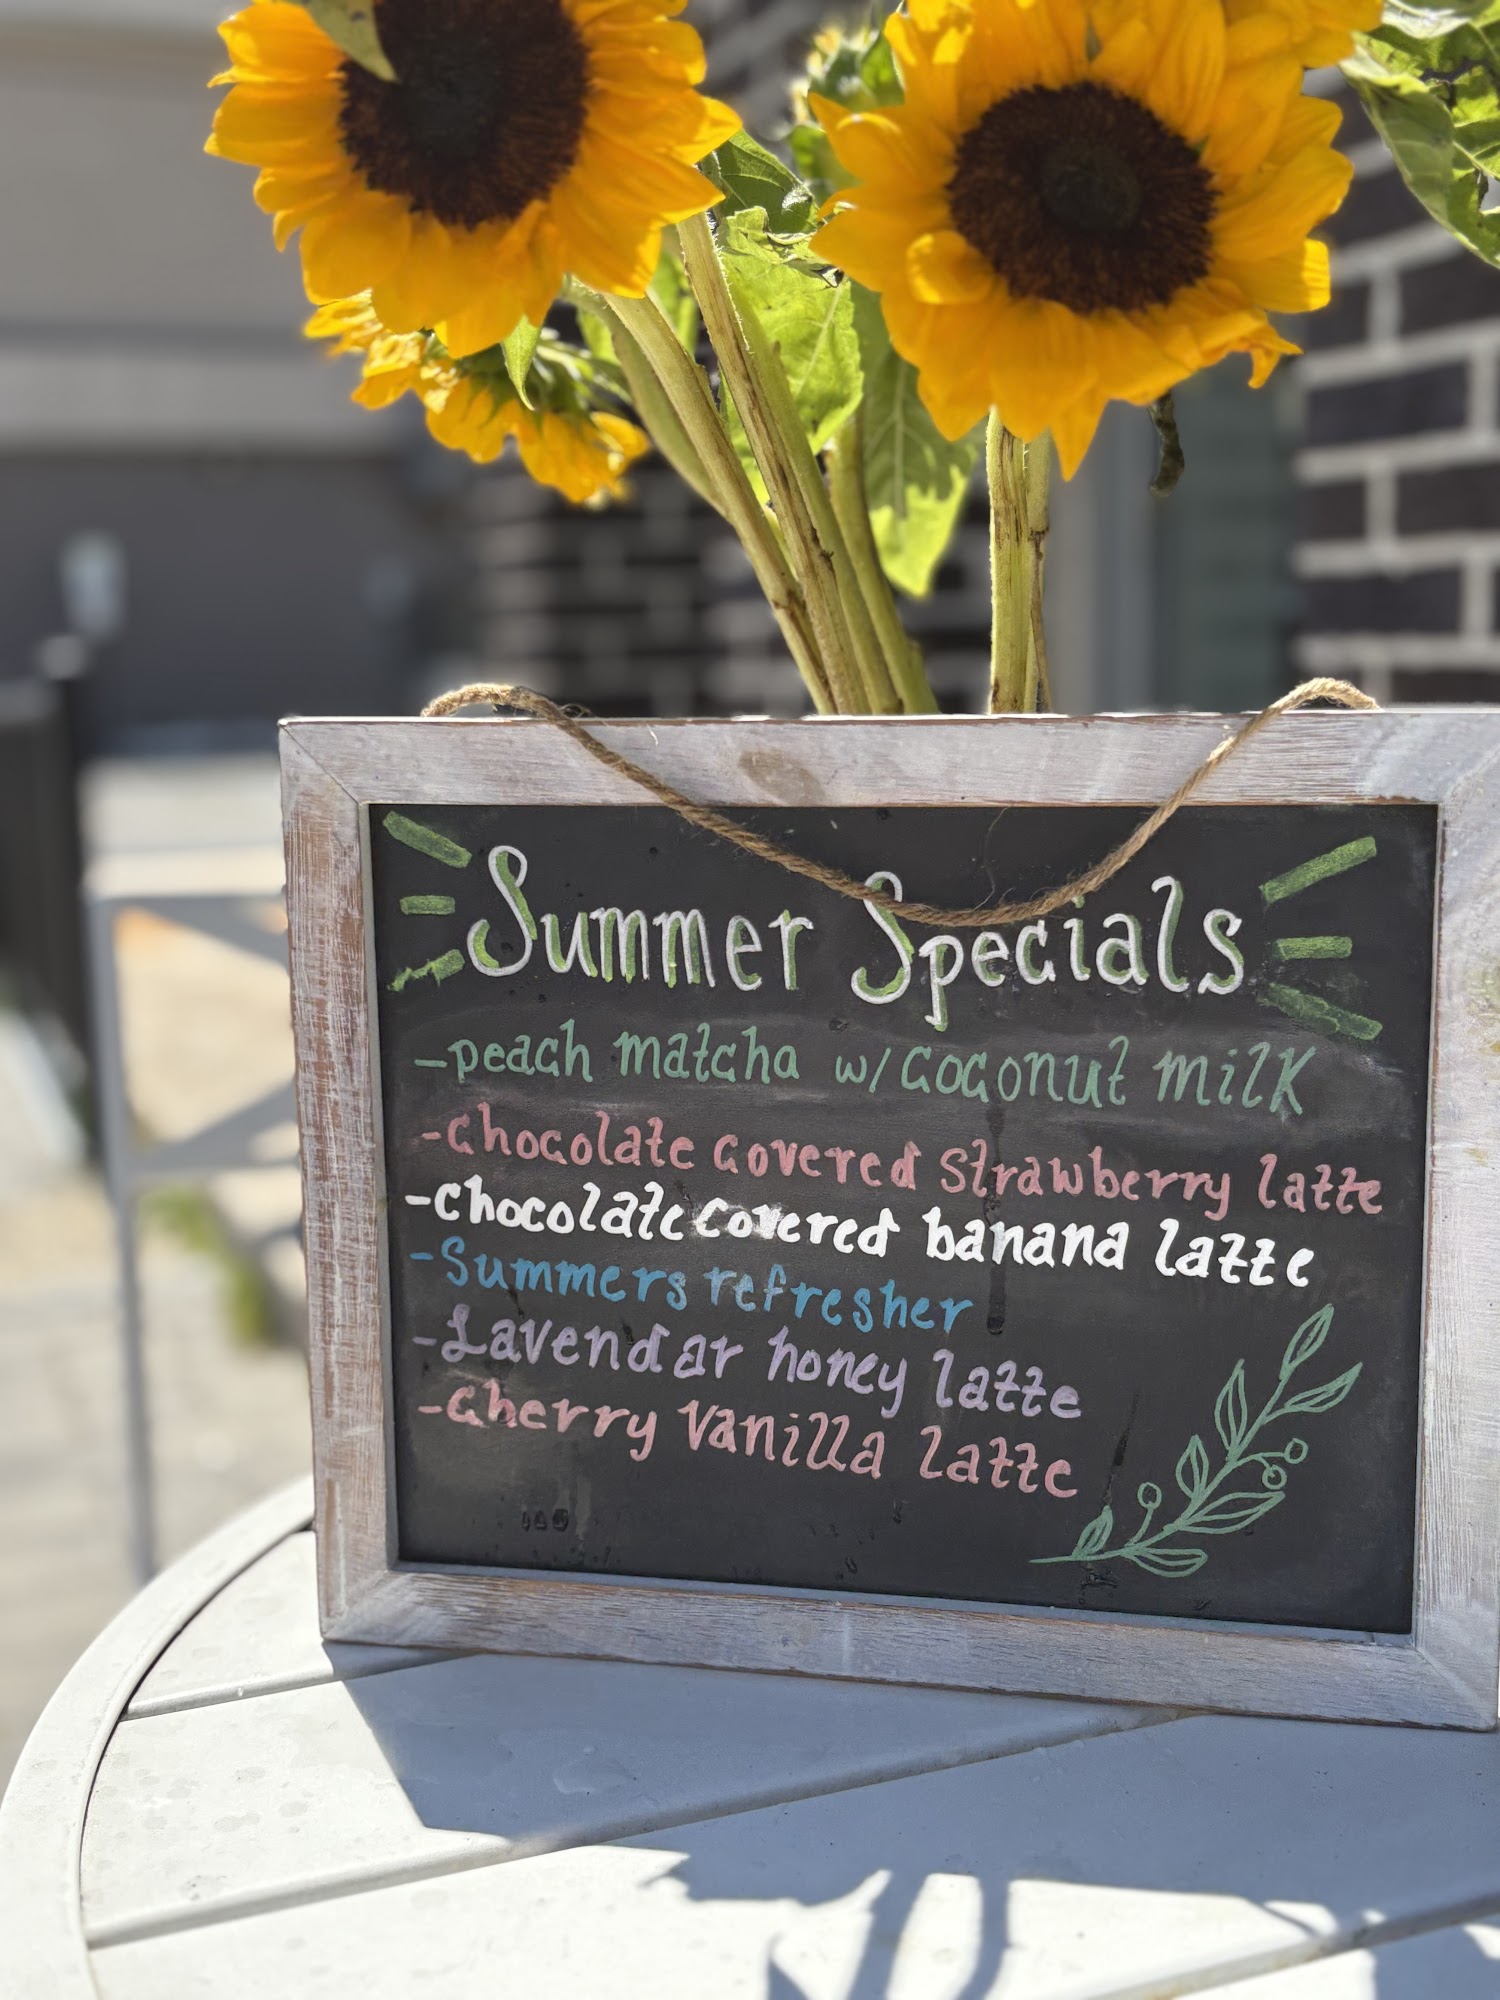 Summer Specials
-peach matcha w/coconut milk
-chocolate covered strawberry latte
-chocolate covered banana latte
-Summers refresher
-Lavendar honey latte
-cherry vanilla latte